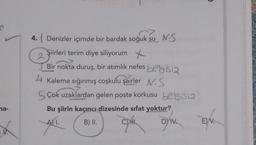 4. 1 Denizler içimde bir bardak soğuk su N.S
2 Şiirleri terim diye siliyorum
3 Bir nokta duruş, bir atımlık nefes belgisiz
4 Kaleme sığınmış coşkulu şairler N.S
5 Çok uzaklardan gelen posta korkusu belgisiz
Bu şiirin kaçıncı dizesinde sıfat yoktur?
A) I. B) II. C) III. D) IV. E) V.